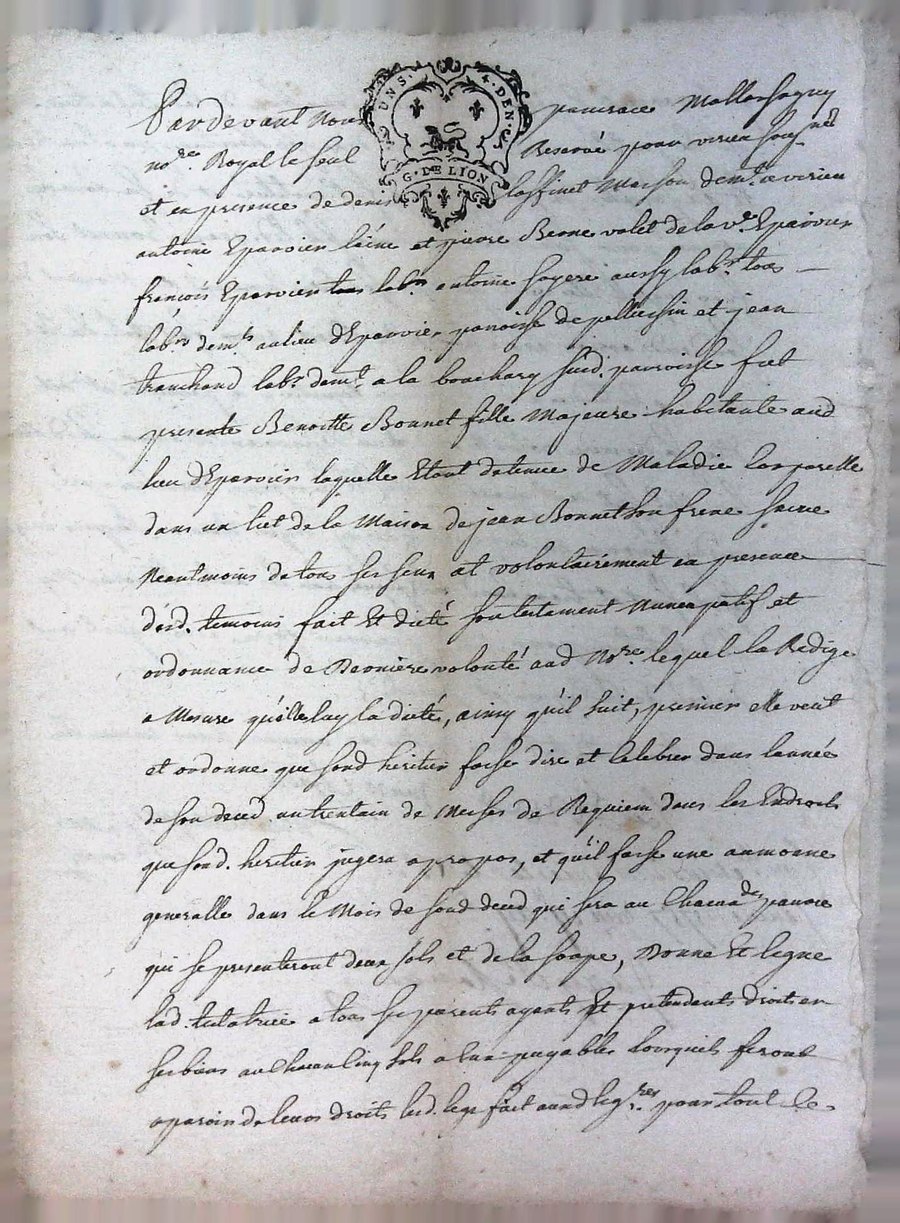 UN S. 4. DEN.
G. DE LION
Pardevant Nous pancrace Mallassagny
nore. Royal le seul Reservé pour virieu sousné
et en presence de denis Maison demt. a virieu
antoine Eparvier lainé et pierre Berne valet de la ve. Eparvier
françois Eparvier labr. antoine fayere aussy labr. tous
labrs. demts. au lieu d'Eparvier paroisse de pellussin et jean
tranchand labr. demt. a la bouchary susd. paroisse fut
presente Benoitte Bonnet fille Majeure habitante aud
lieu d'Eparvier laquelle Etant detenue de Maladie Corporelle
dans un lict de la Maison de jean Bonnet son frere saine
Neantmoins de tous ses sens et volontairement en presence
desd. temoins fait Et dicté son testament Nuncupatif et
ordonnance de Derniere volonté aud Nore. lequel la Redigé
a Mesure qu'elle luy la dicté, ainsy qu'il suit, premier elle veut
et ordonne que sond heritier fasse dire et Celebrer dans lannée
de son deced un trentain de Messes de Requiem dans les Endroits
que sond. heritier jugera a propos, et qu'il fasse une aumone
generalle dans le Mois de sond deced qui sera au Chacun des pauvre
qui se presenteront deux sols et de la soupe, Donne Et legue
lad. testatrice a tous ses parents ayants Et pretendants droits en
ses biens au Chacun Cinq sols a Eux payables lorsquils feront
aparoir de leurs droits led. legs fait auxd legres. pour tout Ce